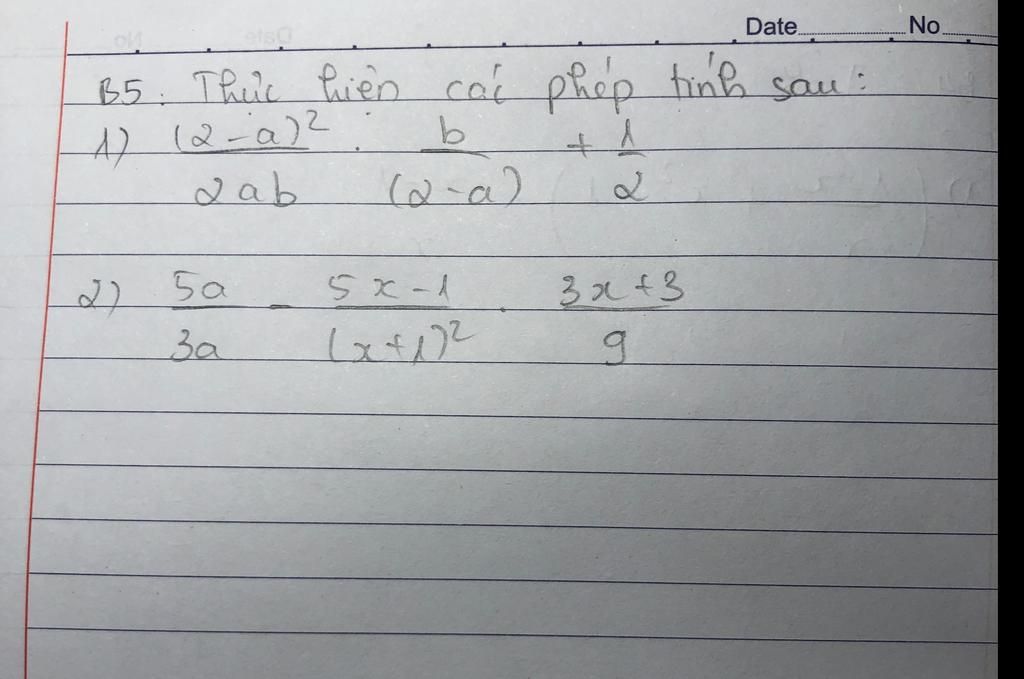 Date No
B5. Thức hiện các phép tính sau:
1) (2-a)²/2ab . b/(2-a) + 1/2
2) 5a/3a - 5x-1/(x+1)² . 3x+3/9